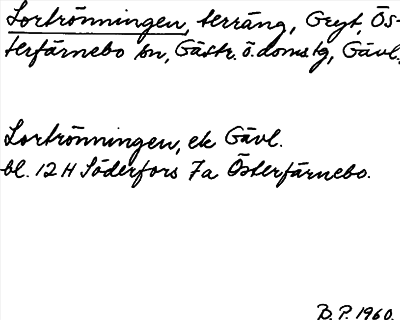 Lortrönningen, terräng, Gryt, Ös-
terfärnebo sn, Gästr. ö. doms tg, Gävl.
Lortrönningen, ek Gävl.
bl. 12 H Söderfors 7a Österfärnebo.
B. P. 1960.